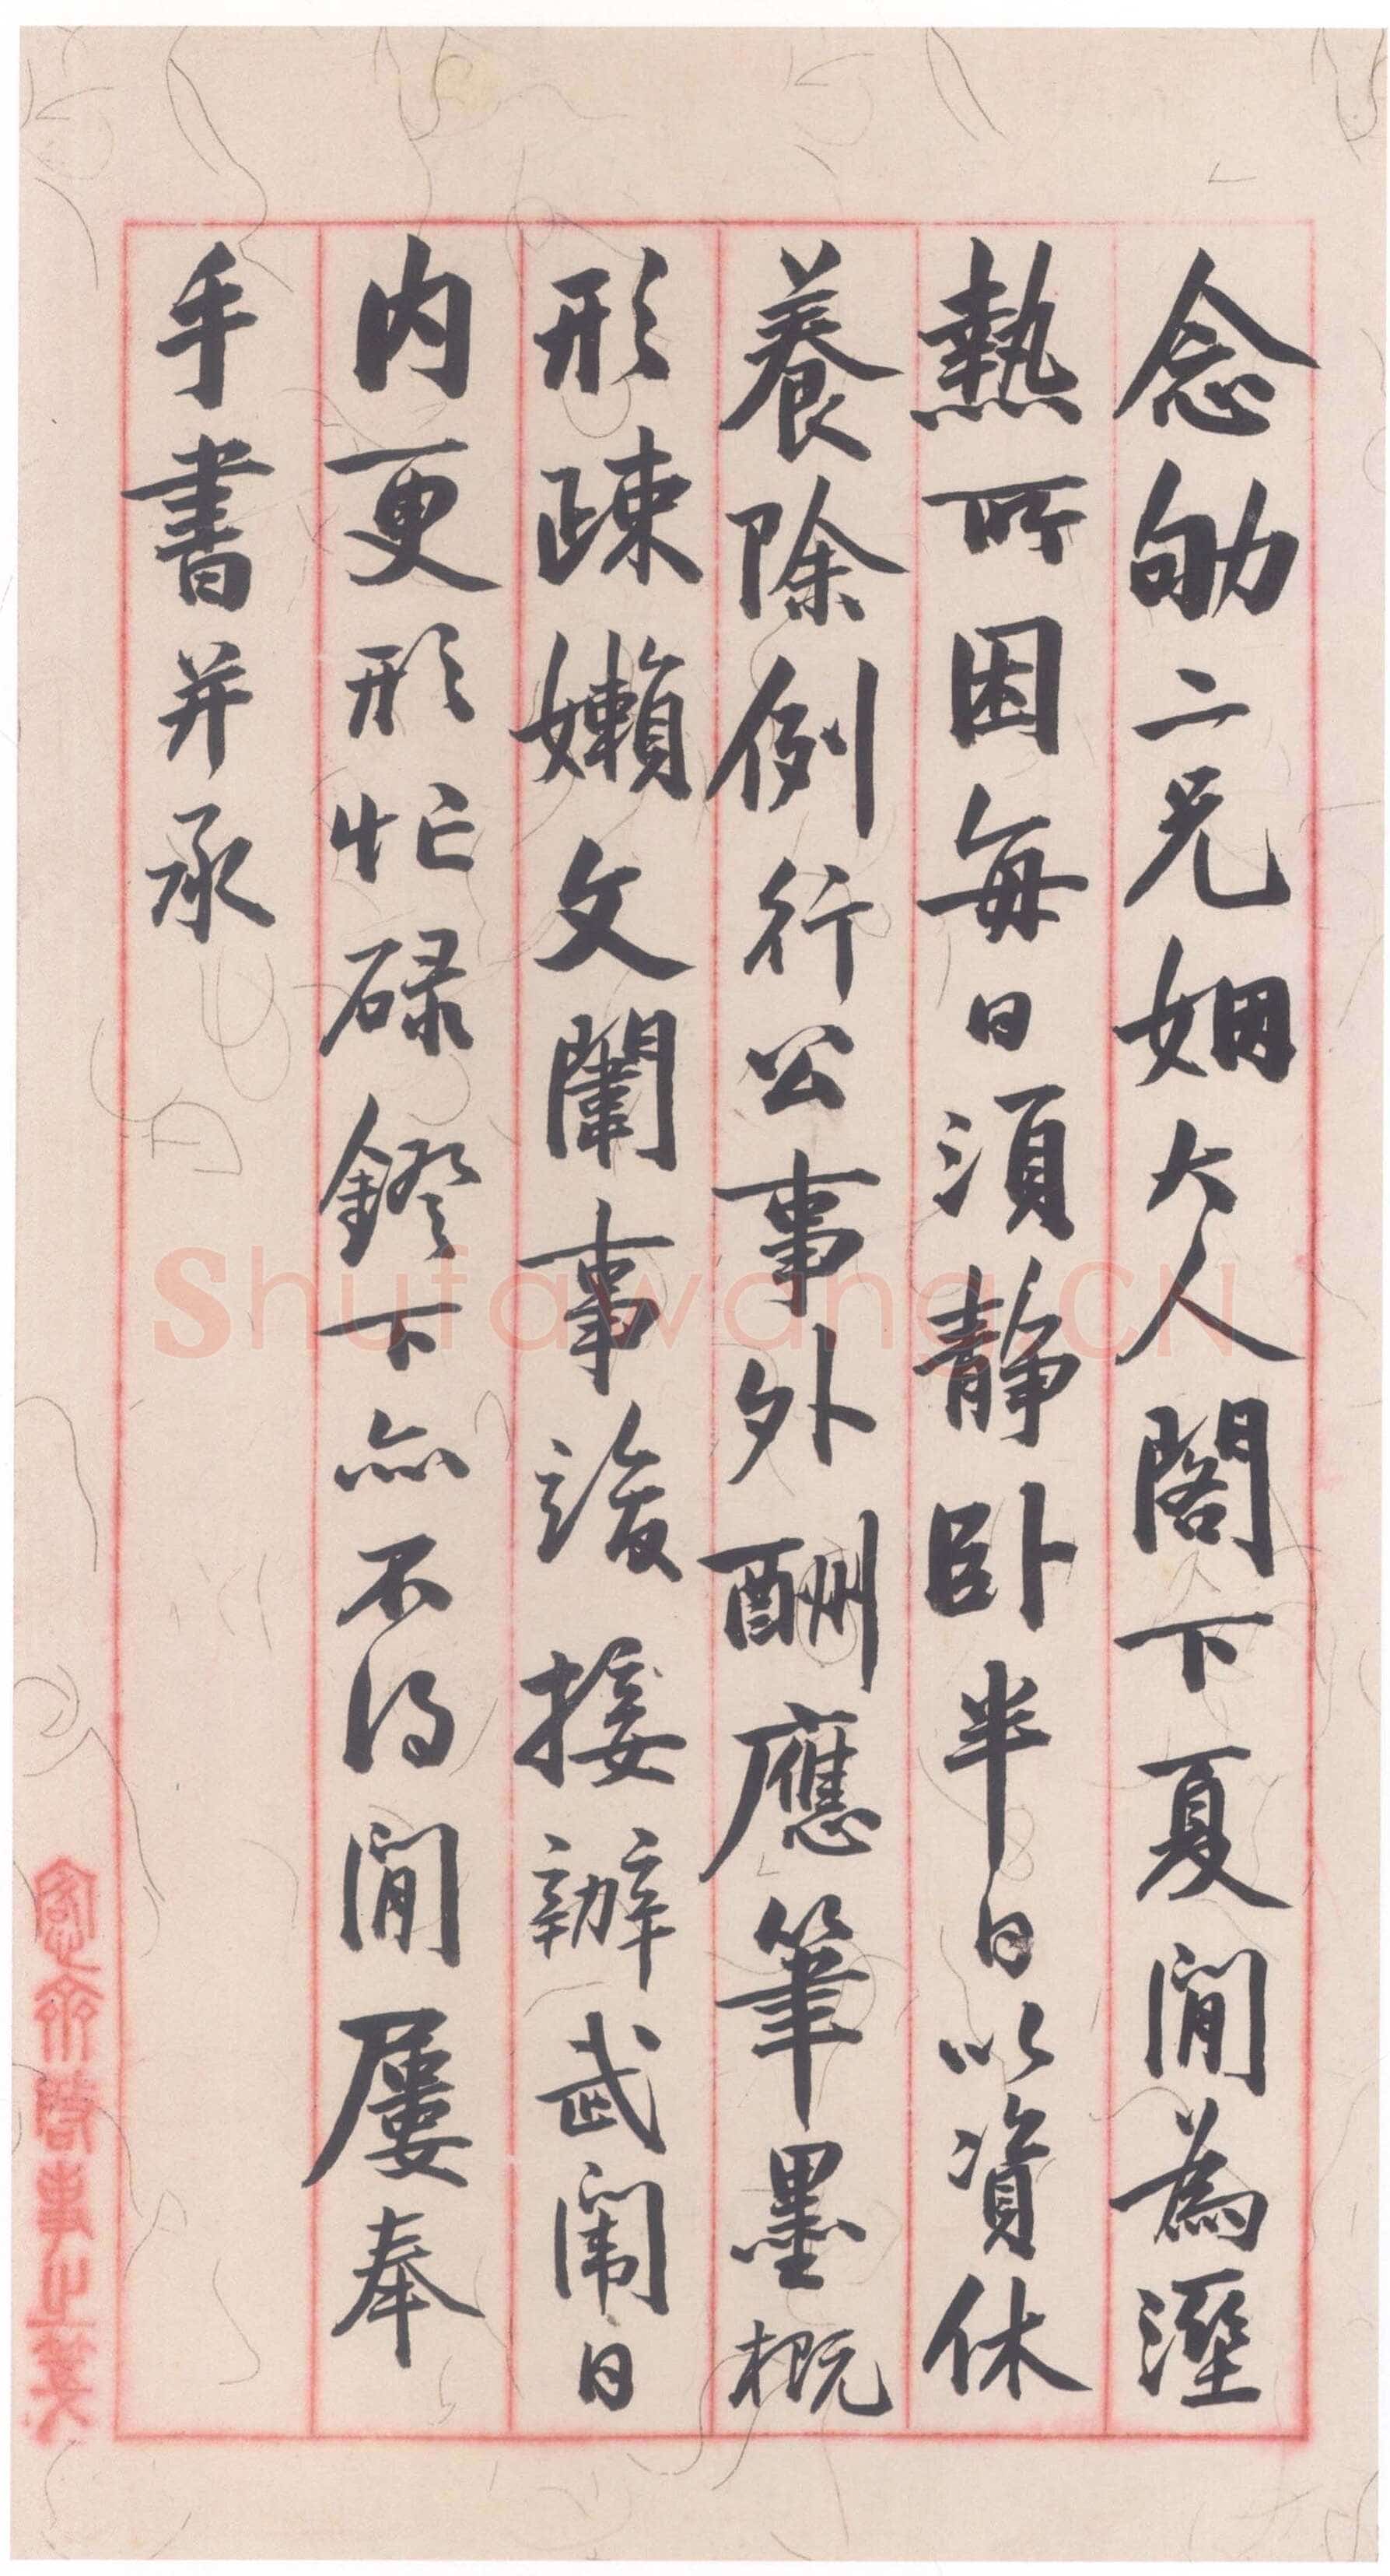 念劬二兄姻大人閣下夏間為溼
熱所困每日須靜卧半日以資休
養除例行公事外酬應筆墨概
形疎嬾文闈事竣接辦武闈日
内更形忙碌鐙下亦不得閒屢奉
手書并承
Shufawang.CN